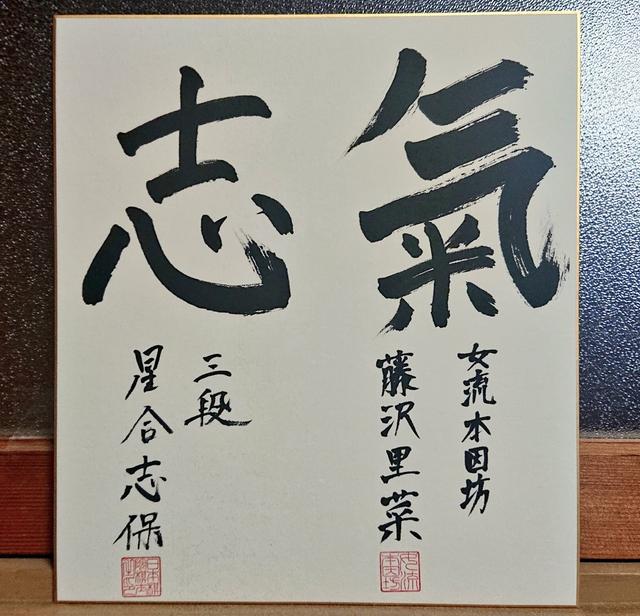 氣
女流本因坊
藤沢里菜
志
三段
星合志保